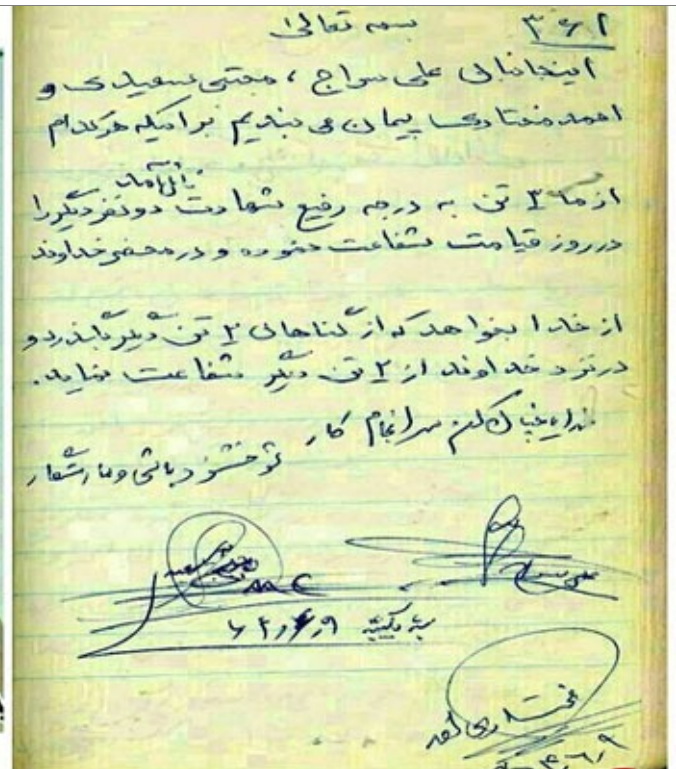 بسمه تعالی
اینجانبان علی سراج ، مجتبی سعیدی و
احمد مختاری پیمان می بندیم براینکه هرکدام
نائل آمد
از ما ۳ تن به درجه رفیع شهادت دونفر دیگر را
در روز قیامت شفاعت نموده و در محضر خداوند
از خدا بخواهد که از گناهان ۲ تن دیگر بگذرد و
در نزد خداوند از ۲ تن دیگر شفاعت نماید.
خدایا چنان کن سرانجام کار
تو خشنود باشی و ما رستگار
علی سراج
مختاری احمد